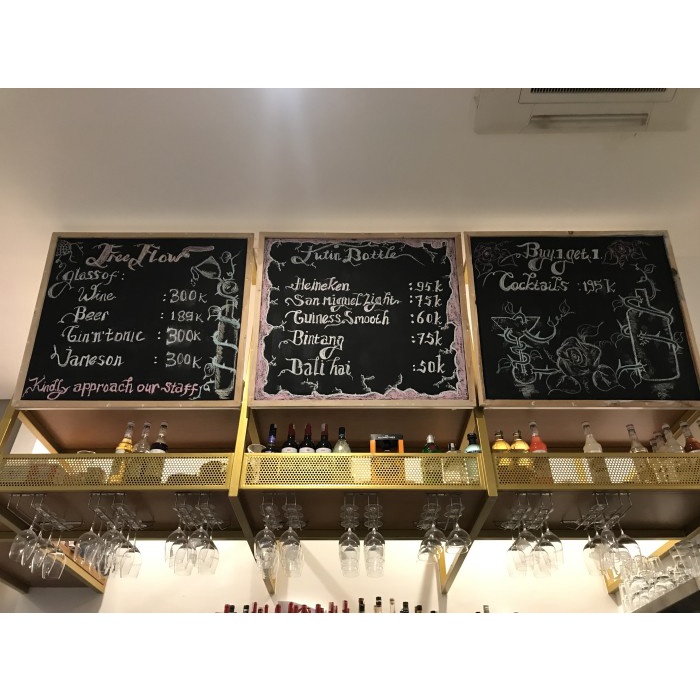 Free Flow
glass of:
Wine : 300K
Beer : 189K
Gin'n'tonic : 300K
Jameson : 300K
Kindly approach our staff
Bottle
Heineken : 95k
San Miguel Light : 75k
Guiness Smooth : 60k
Bintang : 75k
Bali hai : 50k
Buy 1 get 1
Cocktails : 195k